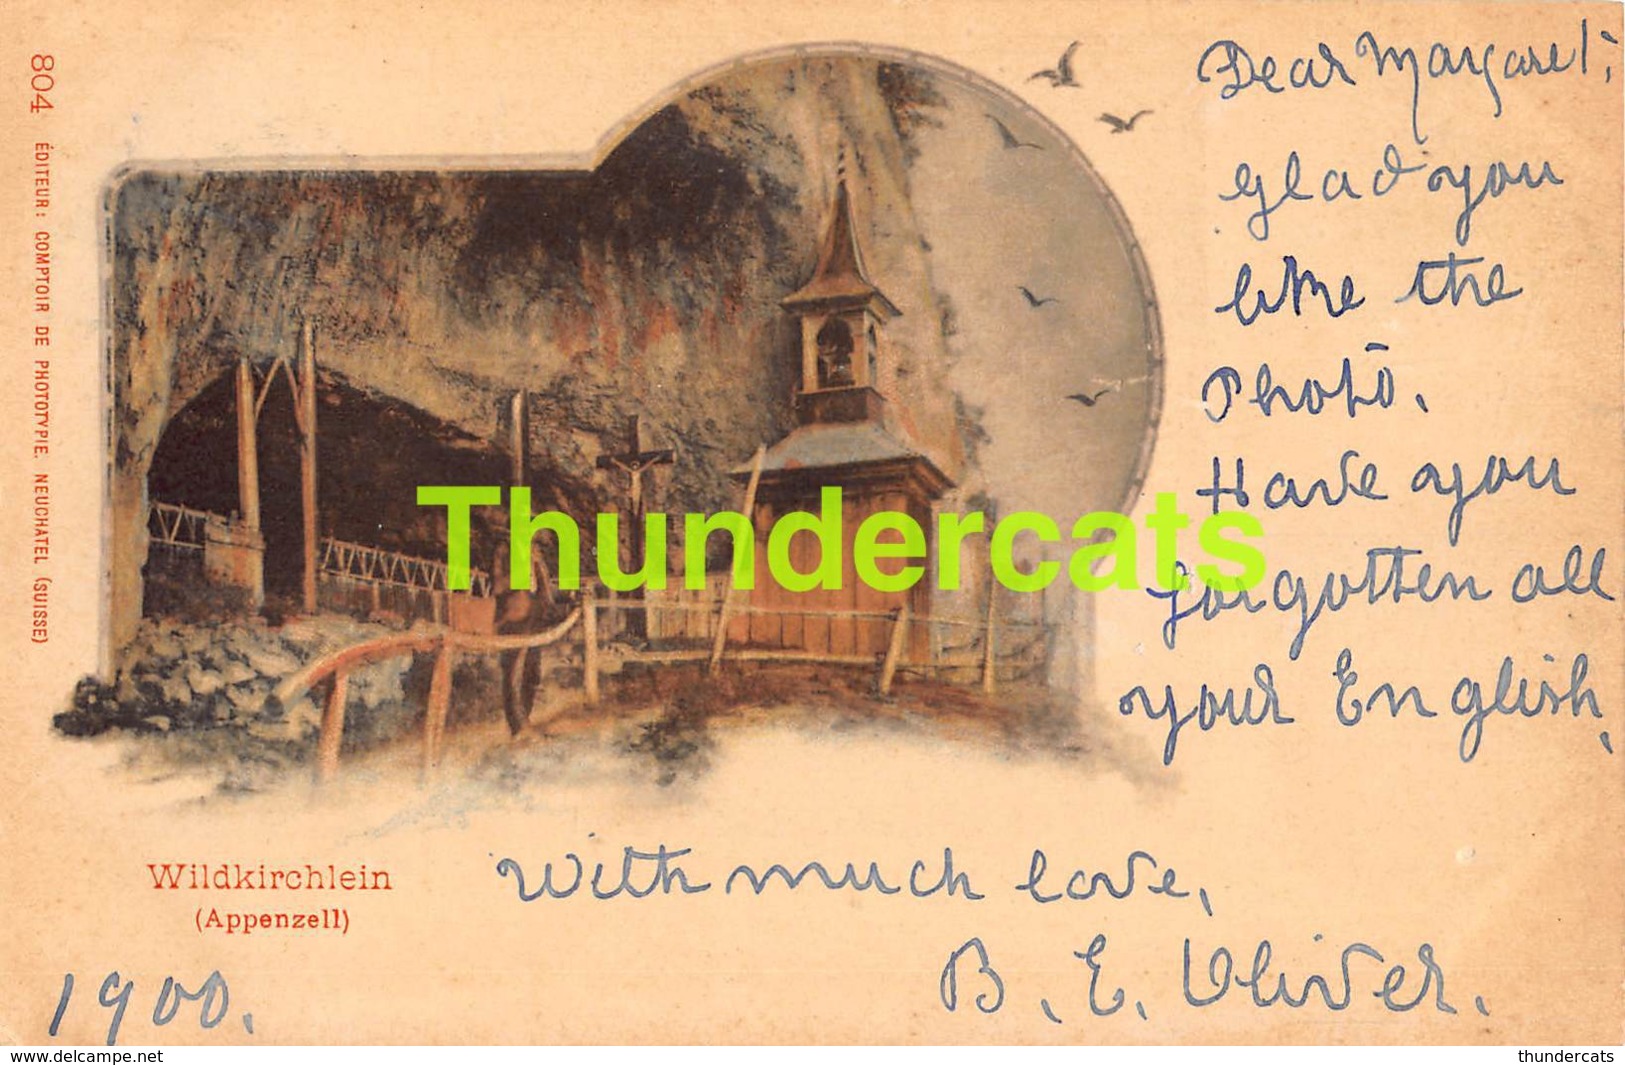 804 ÉDITEUR: COMPTOIR DE PHOTOTYPIE. NEUCHATEL (SUISSE)
Dear Margaret;
glad you
like the
Photo.
Have you
forgotten all
your English,
With much love,
B. E. Oliver.
Thundercats
Wildkirchlein
(Appenzell)
1900.
www.delcampe.net
thundercats